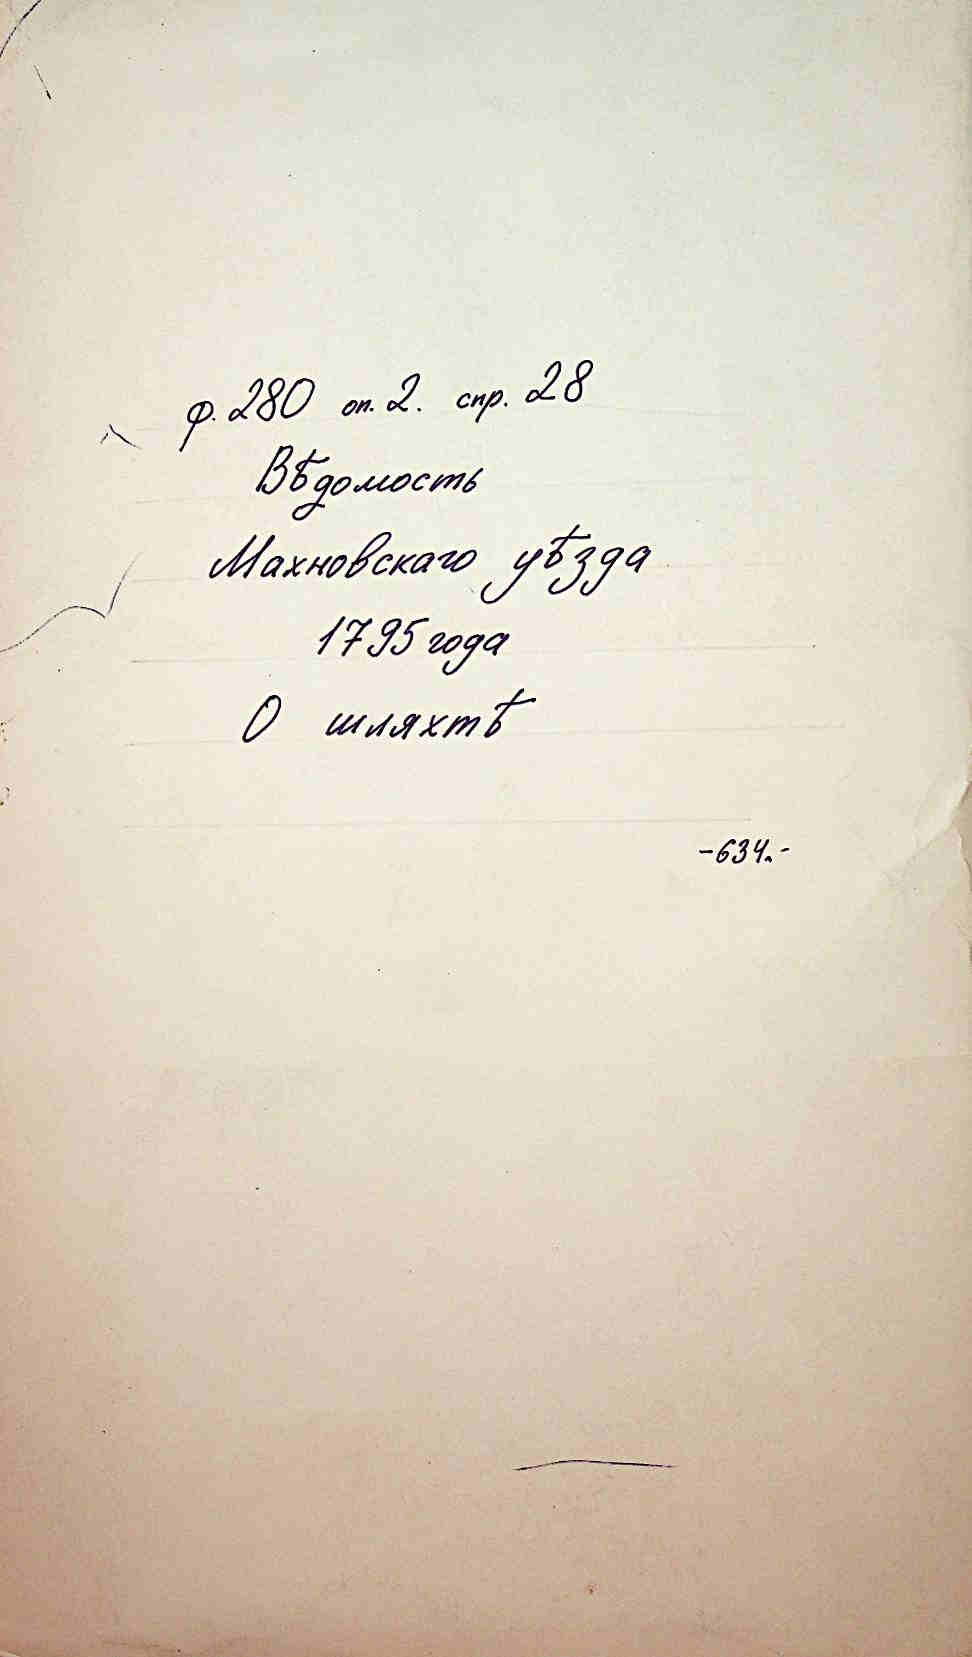 ф. 280 оп. 2. спр. 28
Вѣдомость
Махновскаго уѣзда
1795 года
О шляхтѣ
-634.-